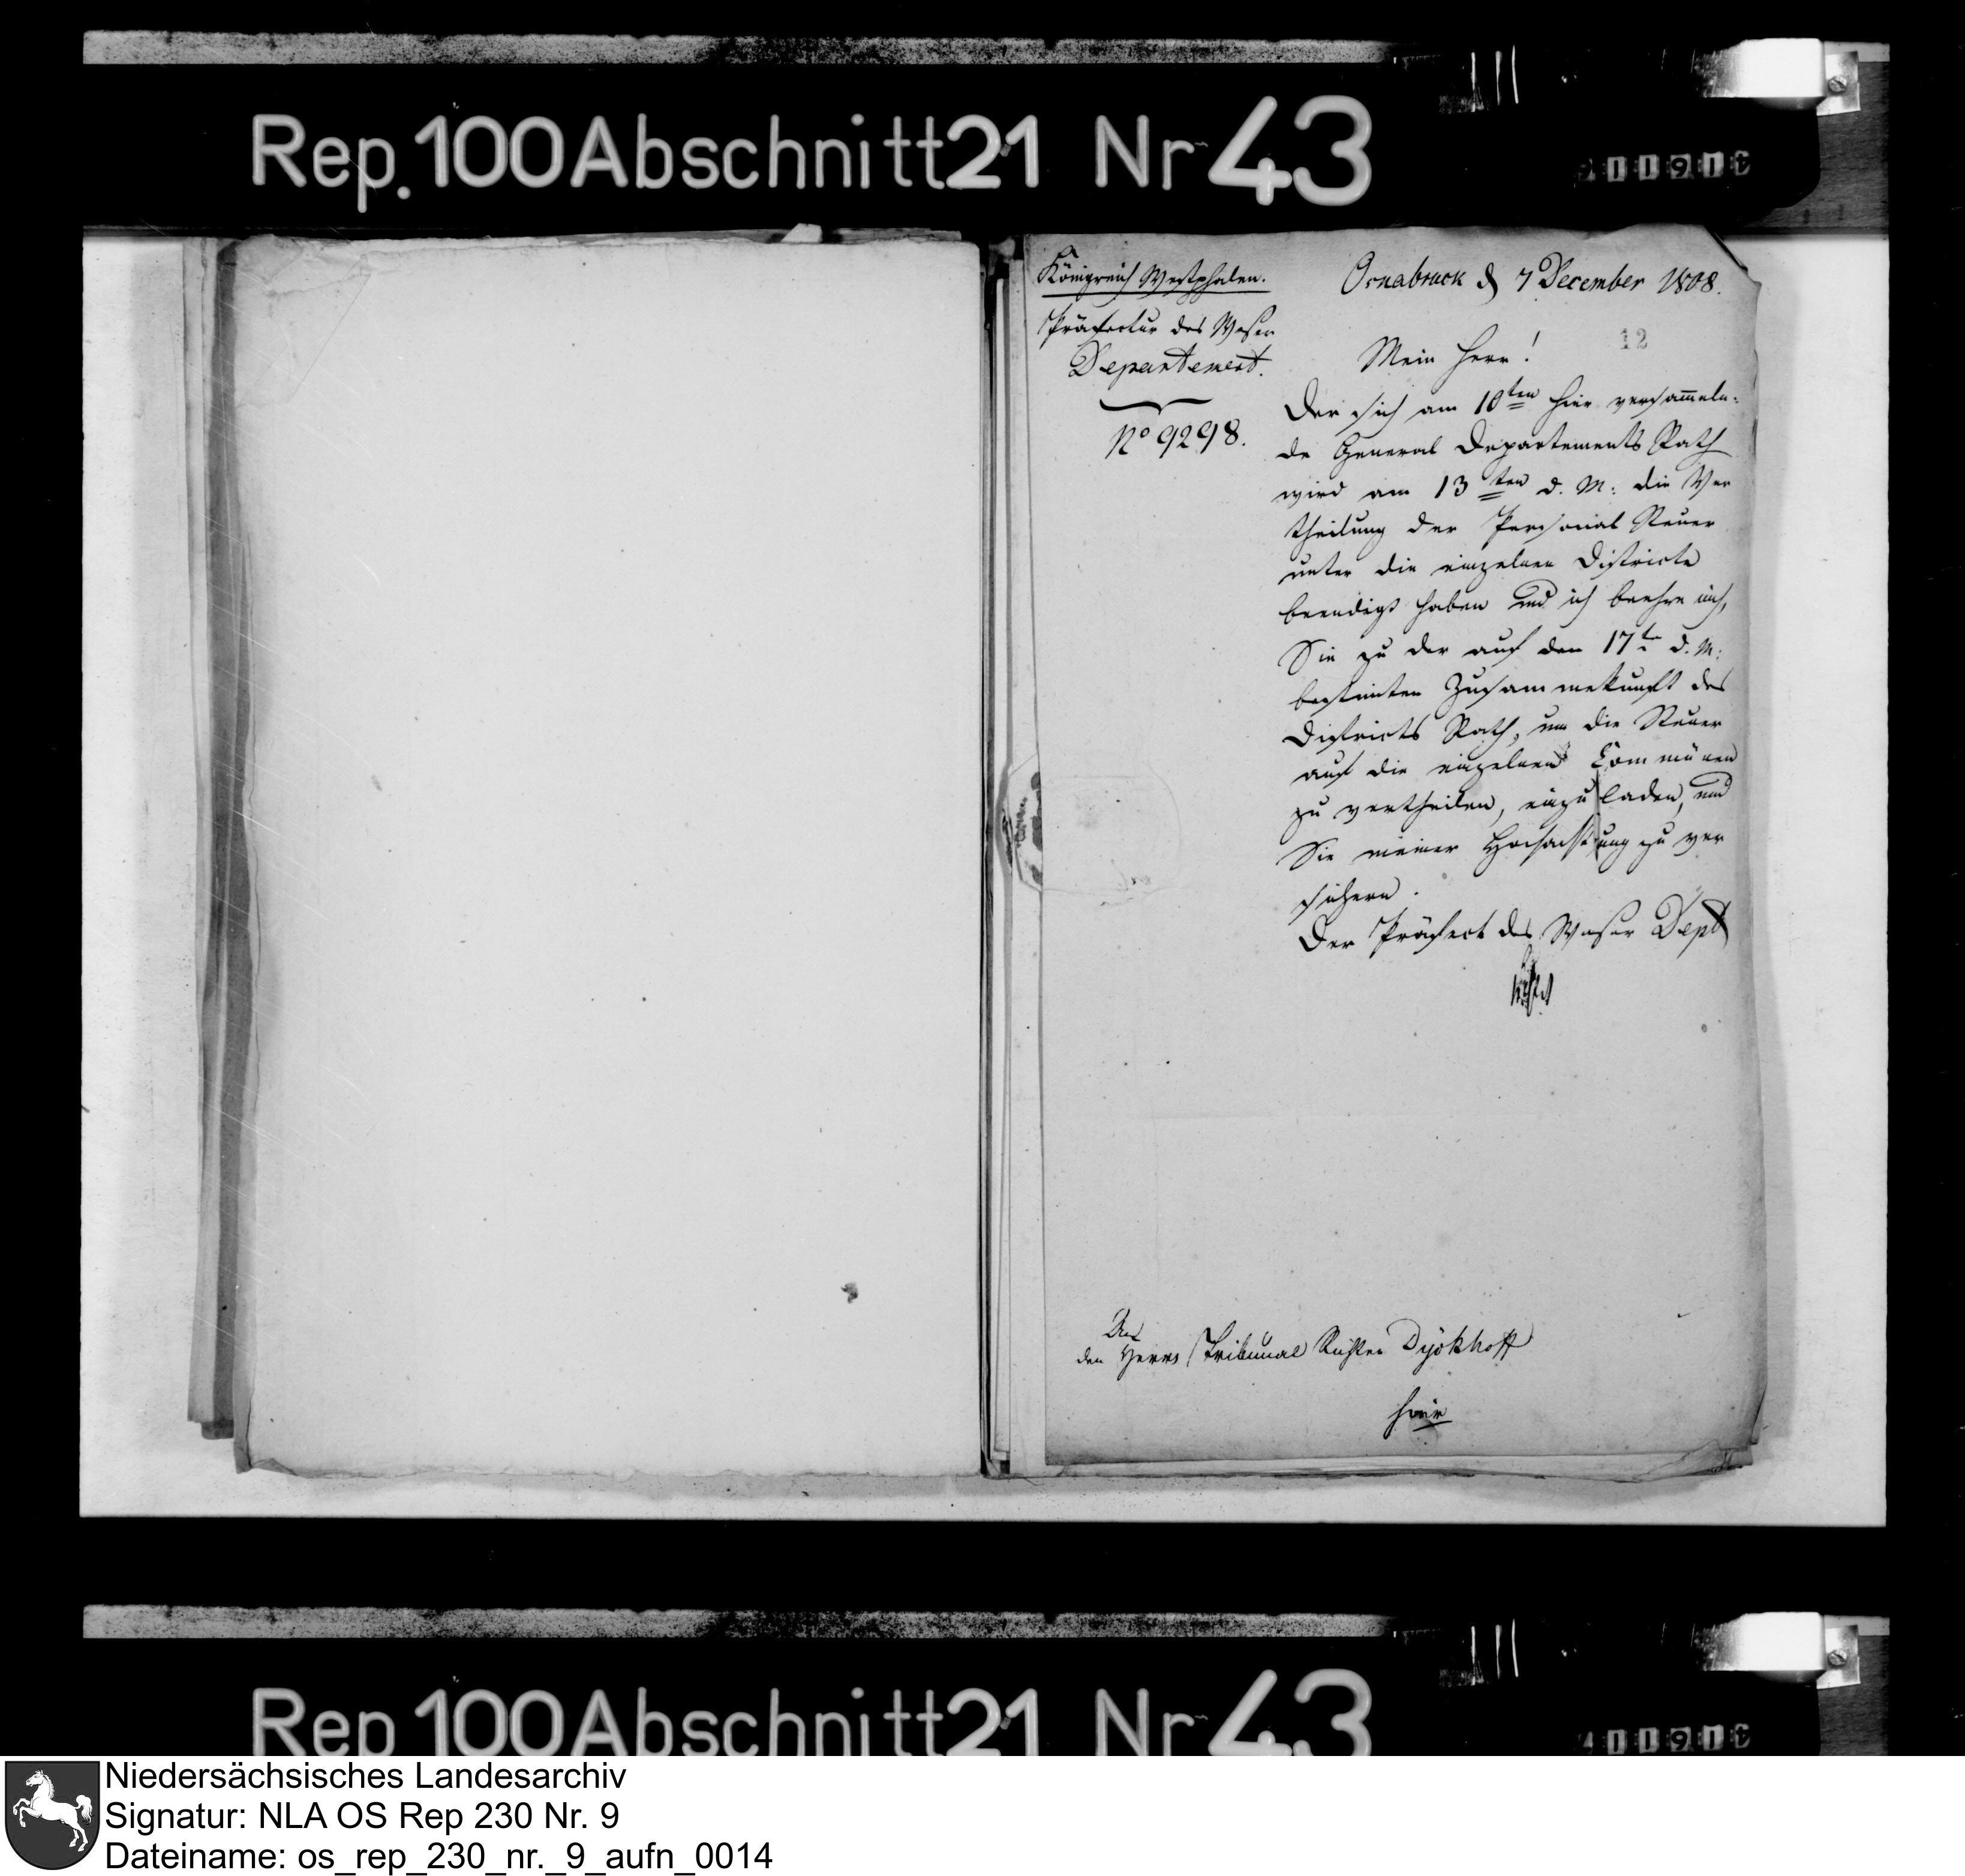 Rep. 100 Abschnitt 21 Nr 43
Königreich Westphalen.
Präfectur des Weser
Departement.
No 9298.
Osnabruck d 7 December 1808.
12
Mein Herr!
Der sich am 10ten hier versam̄eln-
de General Departements Rath
wird am 13ten d. M: die Ver
theilung der Personal Steuer
unter die einzelnen Districte
beendigt haben und ich beehre mich,
Sie zu der auf den 17te d. M:
bestimten Zusammekunft des
Districts Rath, um die Steuer
auf die einzelnen Communen
zu vertheilen, einzuladen, und
Sie meiner Hochachtung zu ver
sichern.
Der Präfect des Weser Dept
An
den Herrn Tribunal Richter Dyckhoff
hier
Rep 100 Abschnitt 21 Nr 43
Niedersächsisches Landesarchiv
Signatur: NLA OS Rep 230 Nr. 9
Dateiname: os_rep_230_nr._9_aufn_0014